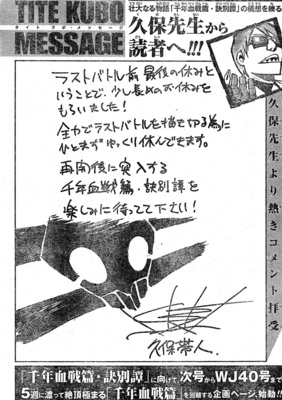 TITE KUBO
タイト クボ・メッセージ
MESSAGE
壮大なる物語「千年血戦篇・訣別譚」の構想を練る
久保先生から
読者へ!!!
久保先生より熱きコメント拝受
ラストバトル前 最後の休みと
いうことで、少し長めのお休みを
もらいました!
全力でラストバトルを描き切る為に
ひとまずゆっくり休んできます。
再開後に突入する
千年血戦篇・訣別譚を
楽しみに待ってて下さい!
久保帯人
「千年血戦篇・訣別譚」に向けて 次号からWJ40号まで
5週に渡って絶頂極まる「千年血戦篇」を回顧する企画ページ、始動!!